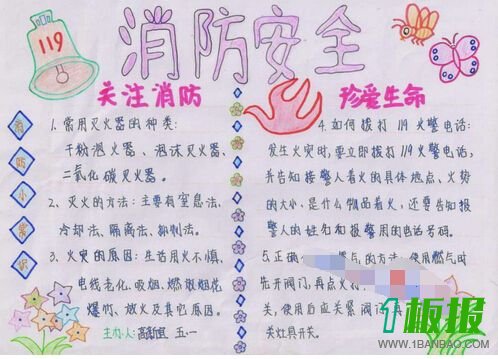 119
消防安全
关注消防
珍爱生命
消防小常识
1、常用灭火器的种类:
干粉泡火器、泡沫灭火器、
二氧化碳灭火器。
2、灭火的方法:主要有窒息法、
冷却法、隔离法、抑制法。
3、火灾的原因:生活用火不慎、
电线老化、吸烟、燃放烟花
爆竹、放火及其它原因。
主办人: 五一
4、如何拨打119火警电话:
发生火灾时,要立即拨打119火警电话,
并告知接警人着火的具体地点、火势
的大小、是什么物品着火,还要告知报
警人的姓名和报警用的电话号码。
5、正确 燃气的方法:使用燃气时
先开阀门,再点火打
关,使用后应关紧阀门
关灶具开关。
1板报
WWW.1BANBAO.COM